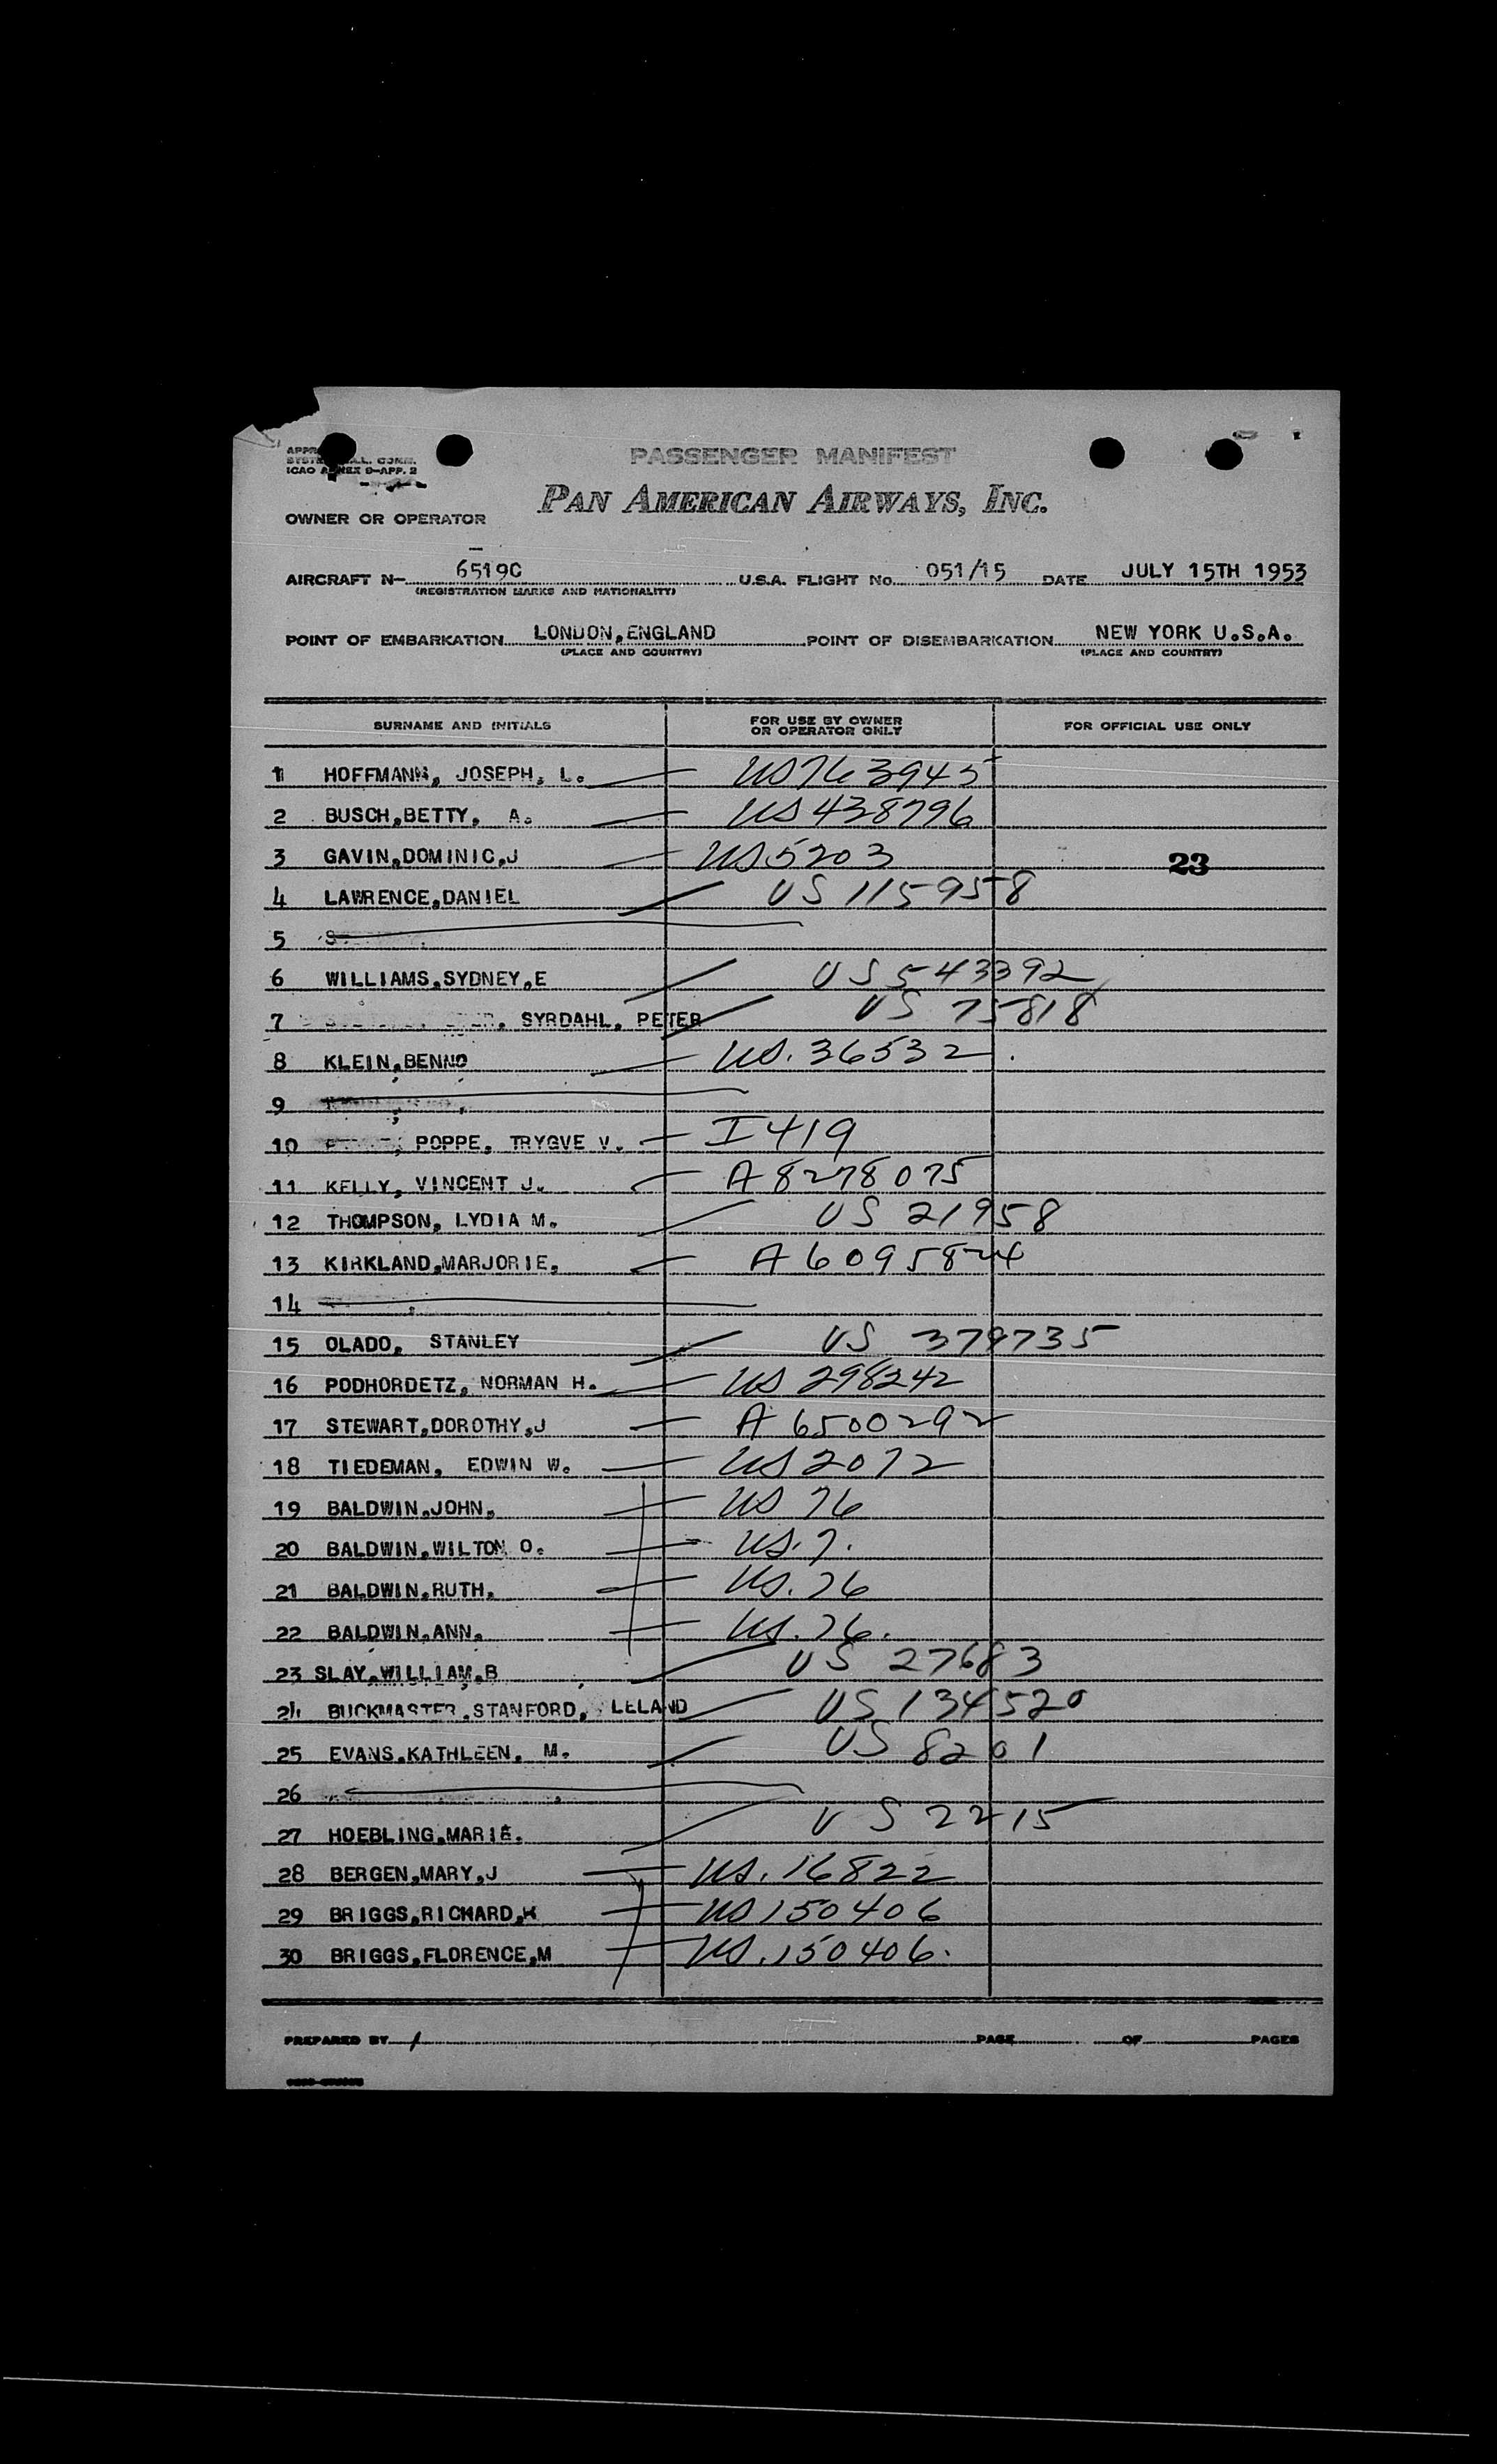 PASSENGER MANIFEST
ICAO ANNEX 9-APP. 2
PAN AMERICAN AIRWAYS, INC.
OWNER OR OPERATOR
AIRCRAFT N- 6519C U.S.A. FLIGHT No. 051/15 DATE JULY 15TH 1953
(REGISTRATION MARKS AND NATIONALITY)
POINT OF EMBARKATION LONDON,ENGLAND POINT OF DISEMBARKATION NEW YORK U.S.A.
(PLACE AND COUNTRY) (PLACE AND COUNTRY)
SURNAME AND INITIALS FOR USE BY OWNER OR OPERATOR ONLY FOR OFFICIAL USE ONLY
1 HOFFMANN, JOSEPH, L. US763945
2 BUSCH,BETTY, A. US438796
3 GAVIN,DOMINIC,J US5203 23
4 LAWRENCE,DANIEL US 115958
5
6 WILLIAMS,SYDNEY,E US 543392
7 SYRDAHL, PETER US 75818
8 KLEIN,BENNO US. 36532
9
10 POPPE, TRYGVE V. I419
11 KELLY, VINCENT J. A8278075
12 THOMPSON, LYDIA M. US 21958
13 KIRKLAND,MARJORIE, A6095824
14
15 OLADO, STANLEY US 379735
16 PODHORDETZ, NORMAN H. US 298242
17 STEWART,DOROTHY,J A 6500292
18 TIEDEMAN, EDWIN W. US2072
19 BALDWIN,JOHN, US 76
20 BALDWIN,WILTON O. US.7.
21 BALDWIN,RUTH, US.76
22 BALDWIN,ANN, US.76.
23 SLAY,WILLIAM,B US 27683
24 BUCKMASTER,STANFORD, LELAND US 134520
25 EVANS,KATHLEEN, M. US 8201
26
27 HOEBLING,MARIE. US 2215
28 BERGEN,MARY,J US. 16822
29 BRIGGS,RICHARD,K US 150406
30 BRIGGS,FLORENCE,M US.150406.
PREPARED BY PAGE OF PAGES